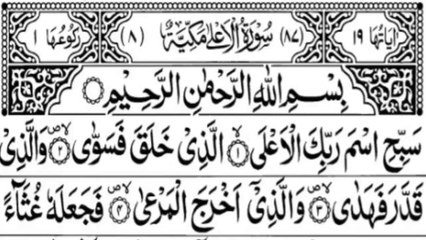 اٰيَاتُهَا ١٩ (٨٧) سُوْرَةُ الْاَعْلٰى مَكِّيَّةٌ (٨) رُكُوْعُهَا ١
بِسْمِ اللّٰهِ الرَّحْمٰنِ الرَّحِيْمِ
سَبِّحِ اسْمَ رَبِّكَ الْاَعْلَى ۙ﴿١﴾ الَّذِىْ خَلَقَ فَسَوّٰى ۙ﴿٢﴾ وَالَّذِىْ
قَدَّرَ فَهَدٰى ۙ﴿٣﴾ وَالَّذِىْۤ اَخْرَجَ الْمَرْعٰى ۙ﴿٤﴾ فَجَعَلَهٗ غُثَآءً